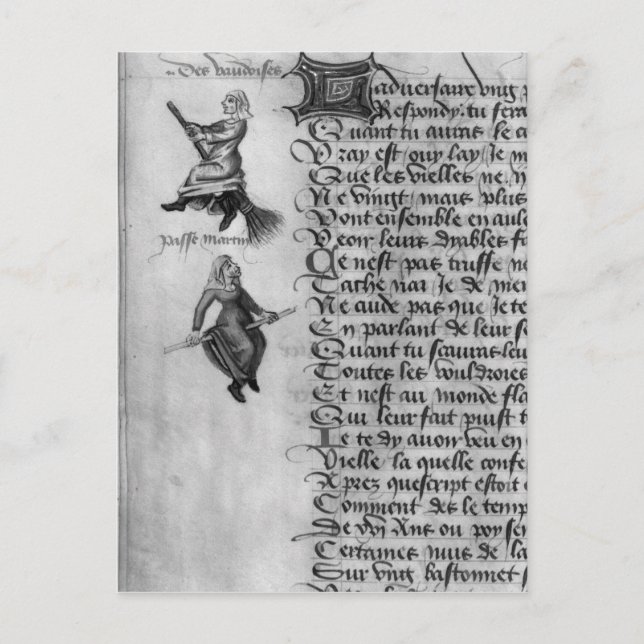 Des vaudoises
passe martin
adversaire ung
Respondy: tu fera
Quant tu auras le
Vray est ouy lay Je
Que les vielles ne
Ne vingt mais plus
Vont ensemble en
Veoir leurs dyables
Ce nest pas truffe ne
Tache niar Je de
Ne aude pas que Je te
En parlant de leur
Quant tu scauras leu
Toutes les
Et nest au monde fla
Qui leur fait puist
Je te dy avoir veu en
Vielle la quelle confe
Aprez quescript estoit
Comment des le temp
De xvi Ans ou poy
Certaines nuis de la
Sur vng bastonnet